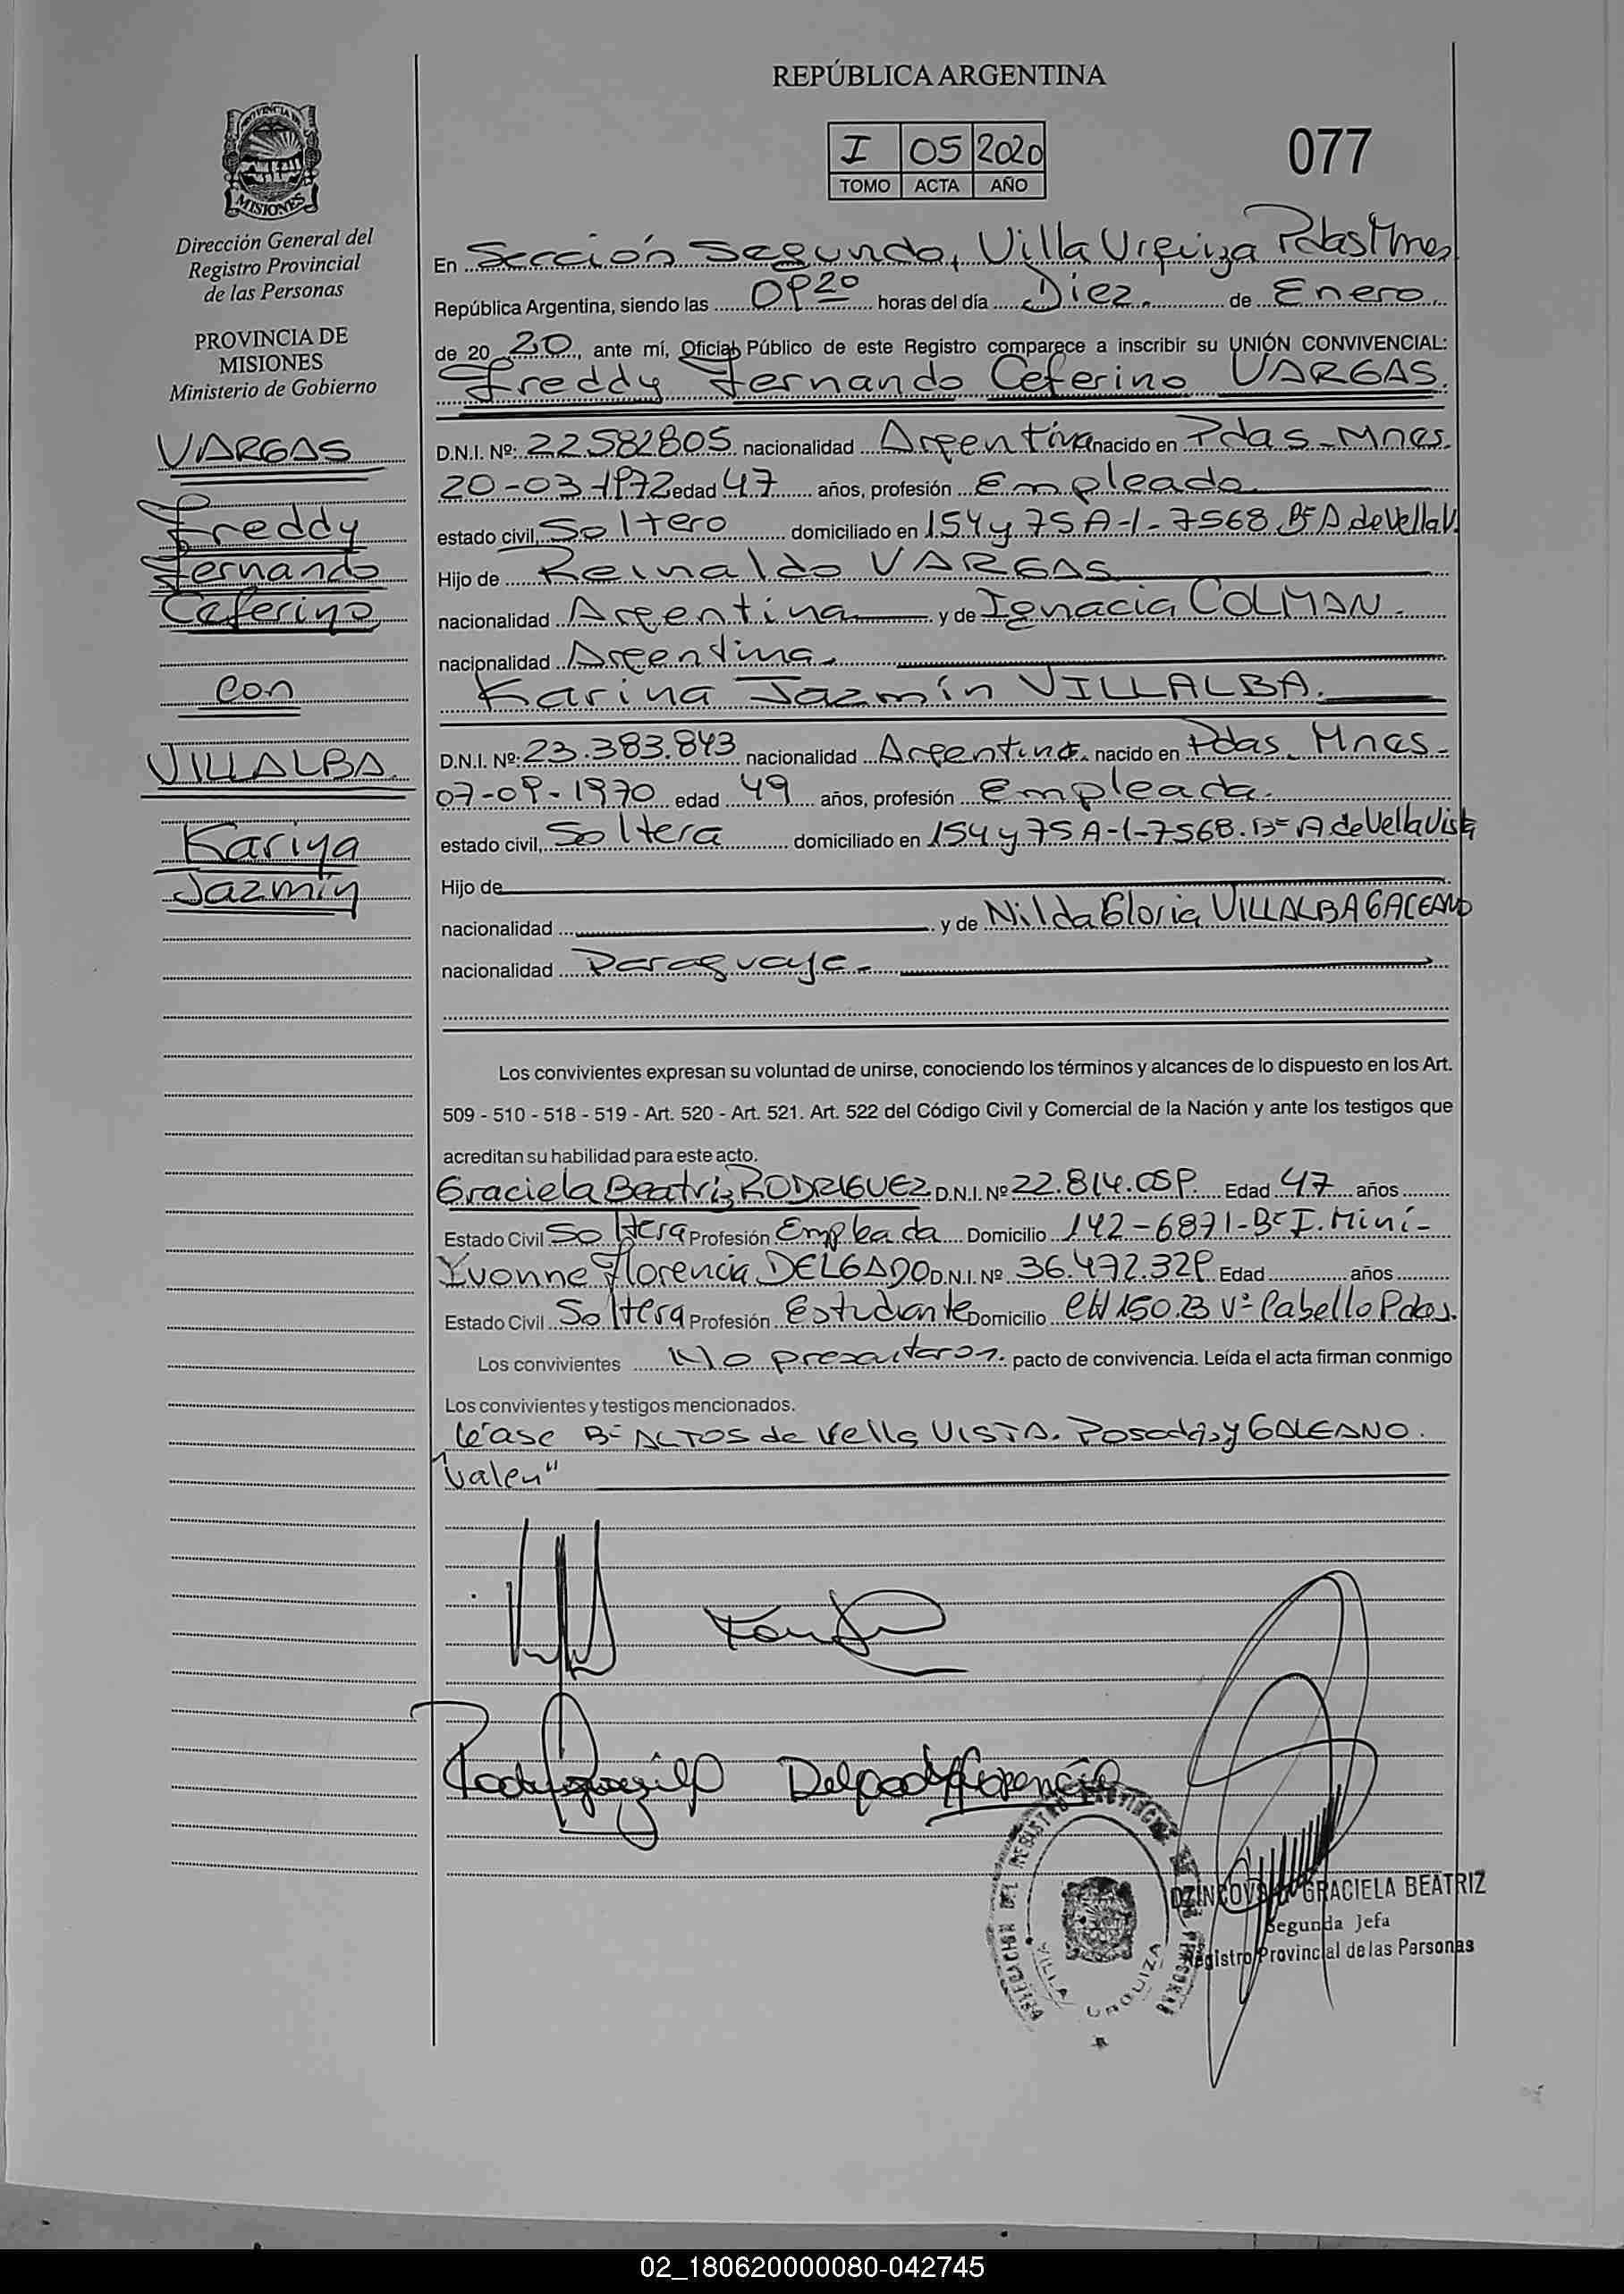 REPÚBLICA ARGENTINA
I 05 2020
TOMO ACTA AÑO
077
PROVINCIA DE
MISIONES
Dirección General del
Registro Provincial
de las Personas
PROVINCIA DE
MISIONES
Ministerio de Gobierno
VARGAS
Freddy
Fernando
Ceferino
con
VILLALBA.
Karina
Jazmín
En Sección Segunda, Villa Urquiza Pdas Mnes
República Argentina, siendo las 09 20 horas del día Diez de Enero
de 20 20, ante mí, Oficial Público de este Registro comparece a inscribir su UNIÓN CONVIVENCIAL:
Freddy Fernando Ceferino VARGAS.
D.N.I. Nº: 22582805 nacionalidad Argentina nacido en Pdas - Mnes.
20-03-1972 edad 47 años, profesión Empleado
estado civil, Soltero domiciliado en 154 y 75 A-1-7568 Bº A. de Vella V.
Hijo de Reinaldo VARGAS
nacionalidad Argentina y de Ignacia COLMAN.
nacionalidad Argentina.
Karina Jazmín VILLALBA.
D.N.I. Nº: 23.383.843 nacionalidad Argentina. nacido en Pdas. Mnes-
07-09-1970 edad 49 años, profesión Empleada.
estado civil, Soltera domiciliado en 154 y 75 A-1-7568. Bº A de Vella Vista
Hijo de
nacionalidad y de Nilda Gloria VILLALBA GALEANO
nacionalidad Paraguaya.
Los convivientes expresan su voluntad de unirse, conociendo los términos y alcances de lo dispuesto en los Art.
509 - 510 - 518 - 519 - Art. 520 - Art. 521. Art. 522 del Código Civil y Comercial de la Nación y ante los testigos que
acreditan su habilidad para este acto.
Graciela Beatriz RODRIGUEZ D.N.I. Nº 22.814.059. Edad 47 años
Estado Civil Soltera Profesión Empleada Domicilio 142-6871-Bº I. Miní-
Yvonne Florencia DELGADO D.N.I. Nº 36.472.329 Edad años
Estado Civil Soltera Profesión Estudiante Domicilio 150.23 Vª Cabello Pdas.
Los convivientes No presentaron. pacto de convivencia. Leída el acta firman conmigo
Los convivientes y testigos mencionados.
léase Bº ALTOS de Vella VISTA. Posadas y GALEANO.
"Valen"
Delgado Florencia
DELEGACION DEL REGISTRO PROVINCIAL DE LAS PERSONAS
VILLA URQUIZA
GRACIELA BEATRIZ
Segunda Jefa
Registro Provincial de las Personas
02_180620000080-042745